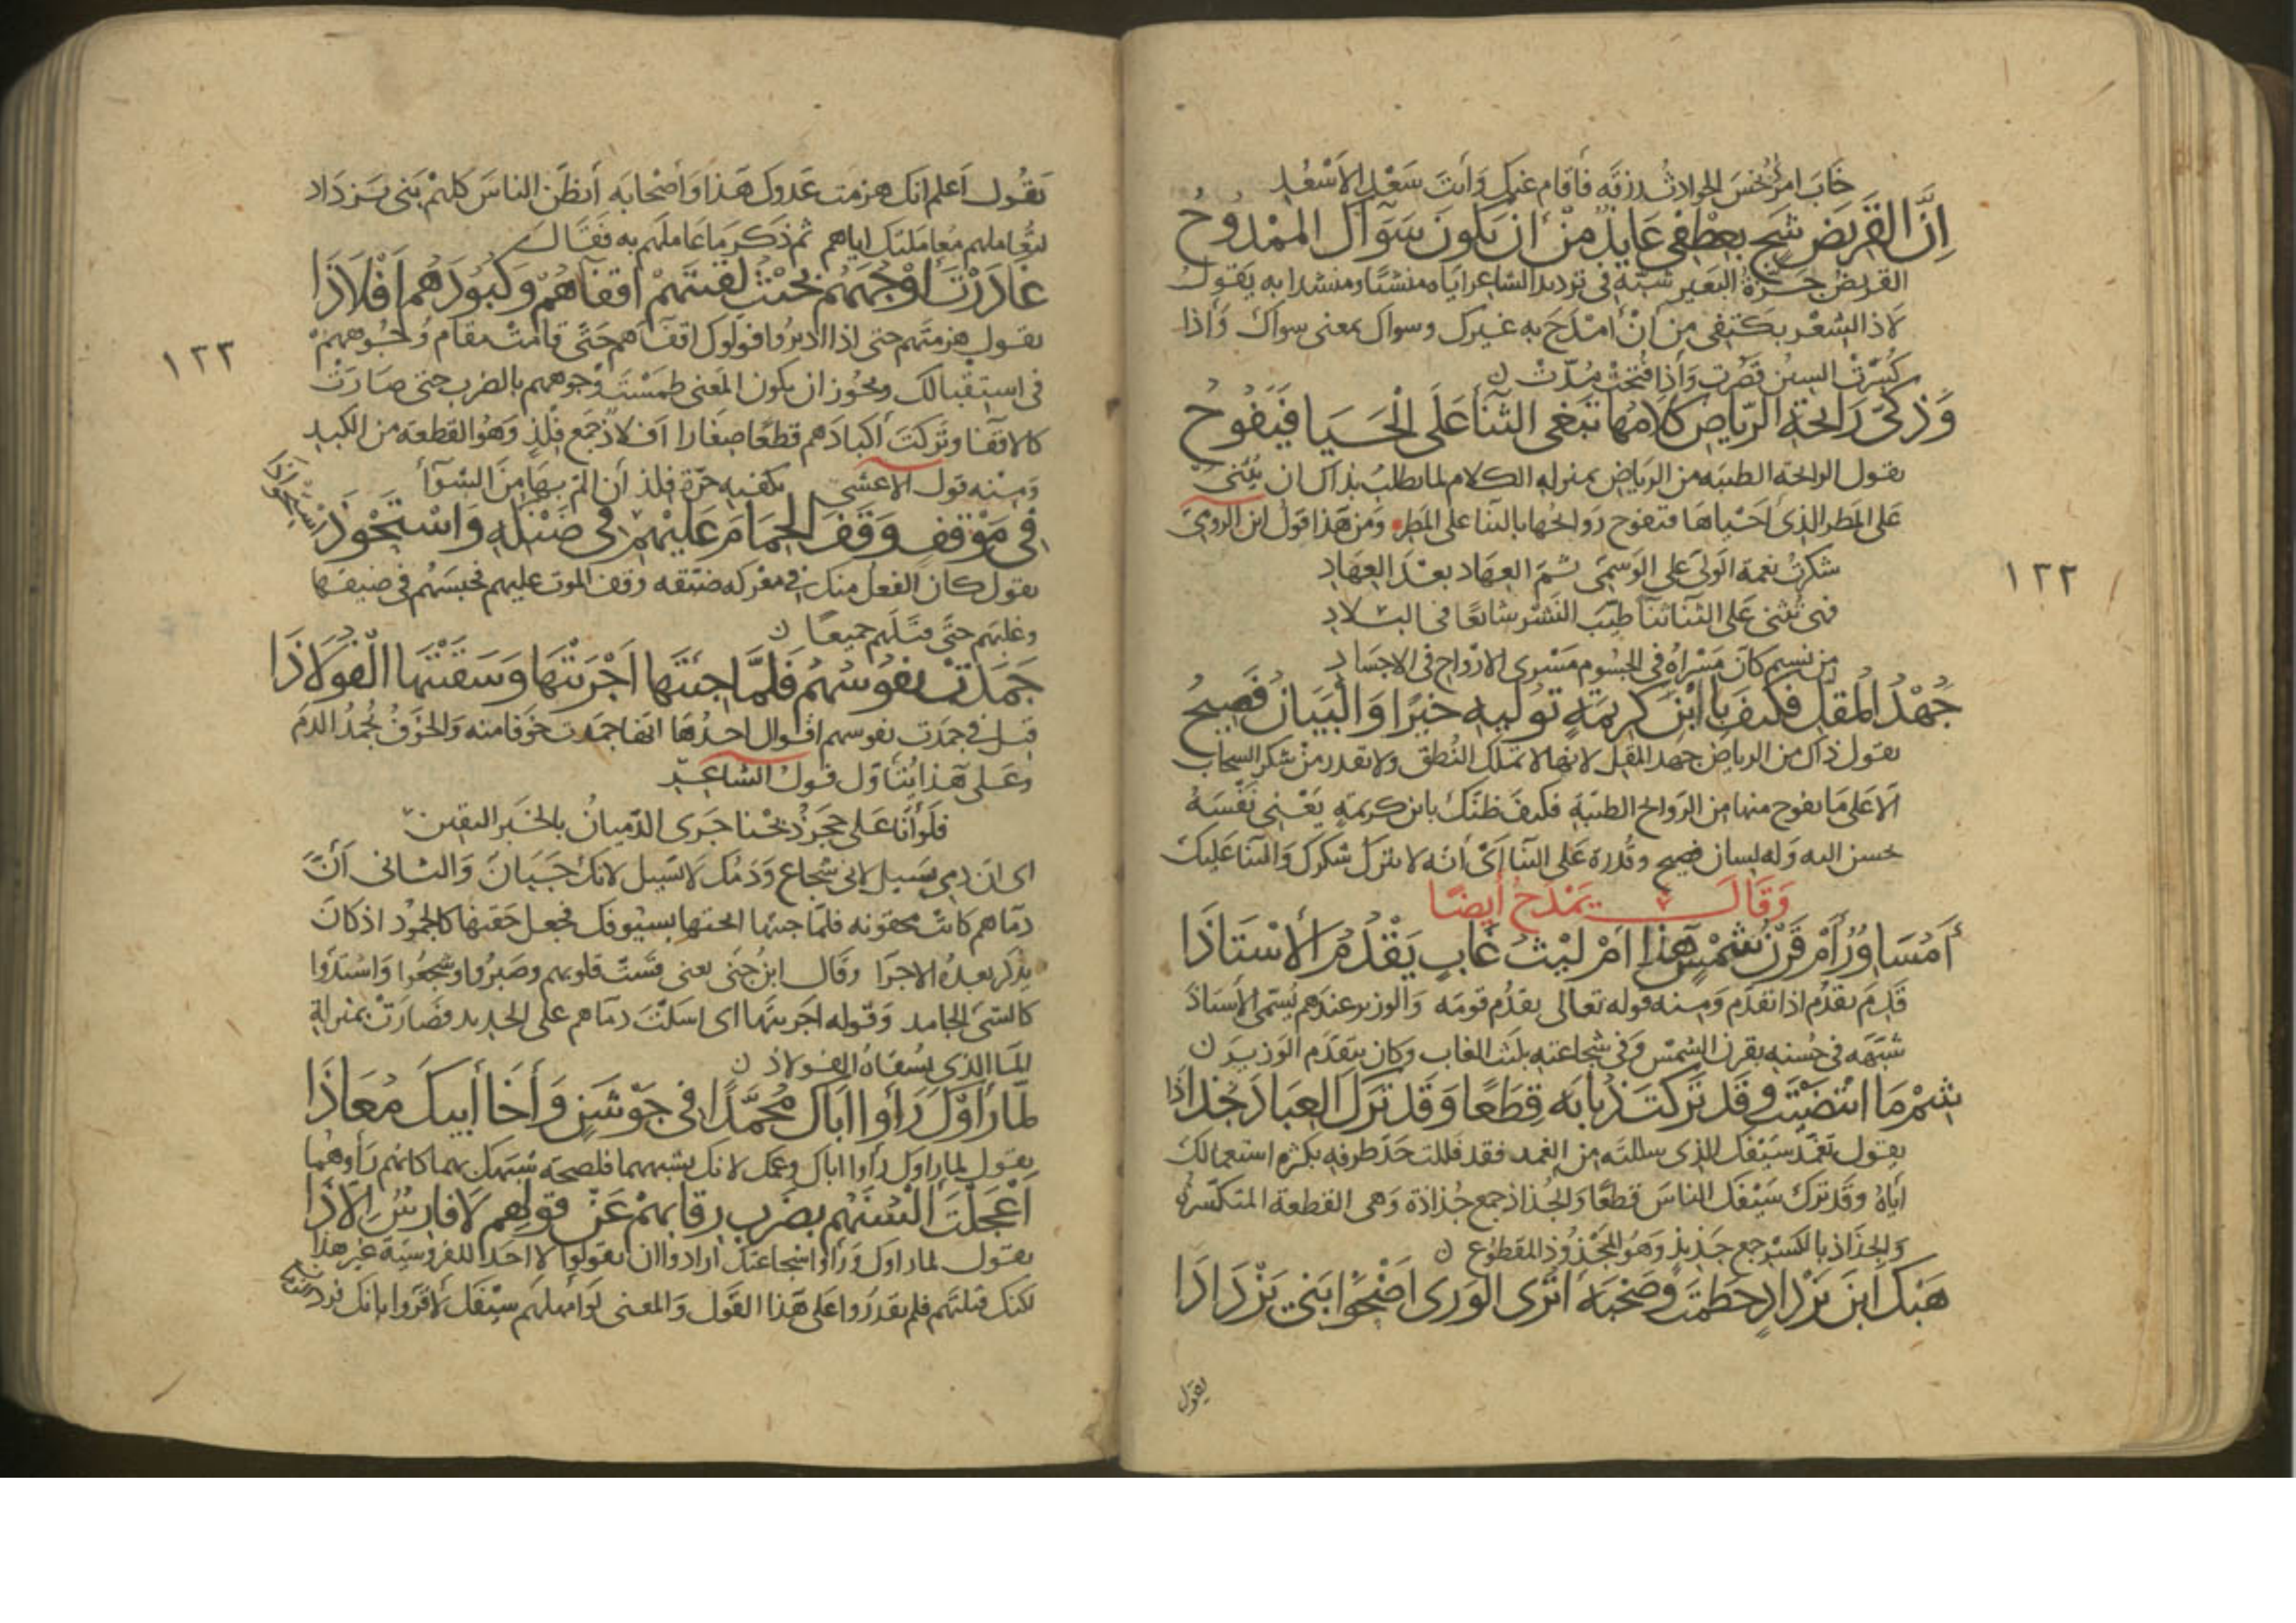 خَابَ امرُؤٌ بخسَ الحوادثُ رزقَه فأقام عنك وَأنتَ سَعْدُ الأسْعُدِ
اِنَّ القَرِيضَ شَجٍ بعِطْفِى عَايِذٌ مِنْ أنْ يَكونَ سَوَآكَ الممْدُوحُ
القريضُ جِرَّةُ البَعير شبّه فى ترديد الشاعر اياه منشئًا ومنشدا به يَقول
لاذ الشعْر بكَنفِى من أنْ امْدَحَ به غيرك وسواك بمعنى سواك وَاذا
كُسِرَتْ السينُ قصُرت وَإذا فُتحَتْ مُدّتْ ن
وَذكىُّ رَايحَةِ الرّيَاضِ كلَامُهَا تَبْغى الثنَآ عَلَى الْحَيَا فيَفُوحُ
يقول الرايحة الطيبه من الرياض بمنزله الكلام لها يطلب بذاك ان يُثنىَ
عَلى المَطَر الذى احْيَاهَا فتفوح رَوايحُها بالثنا على المطر وَمن هَذا قول ابن الرومى
شكرتْ نعْمة الوَلىّ على الوَسمىّ ثم العِهَاد بعْدَ العِهَادِ
فهى تُثنى عَلى الثنا ثنآ طيّبَ النَشْر شايعًا فى البلادِ
من نسيم كانَ مَسْراهُ فى الجسُوم مَسْرى الارْوَاح فى الاجسَادِ
جُهْدُ المُقِلّ فكَيفَ بِاابْنِ كريمَةٍ تُوليه خيْرًا وَالْبَيَانُ فَصِيحُ
يقول ذاك من الرياض جهد المقل لانها لا تملك النُطق ولا تقدر من شكر السحاب
الّا عَلى مَا يفوح منها من الرَوايح الطيّبةِ فكيفَ ظنّك بابن كريمةٍ يَعْنى نَفْسَهُ
تحسن اليه وَله لسان فصيح وقُدرة عَلى الثنا اىْ انّه لا يترك شكرك وَالثنا عَليك
وَقَالَ يَمْدَحُ أيضًا
أَمُسَاوِرٌ أمْ قَرْنُ شَمْسٍ هَذا اَمْ لَيْثُ غَابٍ يَقْدُمُ الأُسْتَاذَا
قَدمَ يقدُم اذا تقدّم وَمنه قوله تعالى يقدُم قومَه وَالوزير عندهم يُسمّى الأستاذ
شبّهَه فى حُسنه بقرن الشمس وَفى شجاعته بليث الغاب وكان يتقدّم الوَزيرَ ن
شِمْ مَا انْتَضَيْتَ فقَدْ تَركتَ ذُبَابَه قِطَعًا وَقَدْ تَرَكَ العِبَادَ جُذَاذَا
يقول تغمّد سَيْفك الذى سللته من الغمد فقد فللت حَدّ طرفه بكثرة استعمالك
ايّاهُ وقَد ترك سَيْفك الناسَ قطعًا وَالجُذاذ جمع جُذاذة وَهى القطعة المتكسّرة
وَالجِذَاذ بالكسْر جمع جَذيذٍ وَهُو المجْذُوذ المقطوُع ن
هَبْكَ ابنَ يَزْدَادٍ حَطَمْتَ وَصَحْبَهُ أَتُرَى الوَرَى اَضْحَوْا بَنِى يَزْدَاذَا
يقول
١٢٢
يَقُول اَعلم انك هزمت عَدوك هَذا وَأصْحابَه أتظنّ الناسَ كلهمْ بَنى يَزدَاد
لتُعاملهم مُعاملتك اياهم ثم ذكرَ مَا عَاملهم به فقَال
غَادَرْتَ اوْجُهَهُمْ بحَيْثُ لَقِيتَهمْ اقفآهُمْ وَكبُودَهُمْ اَفْلَاذَا
يقول هزمتهم حتى اذا ادبرُوا فولوك اقفاهم حَتَّى قامَتْ مقام وُجُوههمْ
فى استِقْبالك ويجُوز ان يكون المَعنى طمَسْتَ وجوههم بالضرب حتى صَارَتْ
كالاقفا وتركتَ اكبادهم قطعًا صِغارا افلاذ جمع فلذٍ وَهُو القطعة من الكبد
وَمنه قول الاعشى تكفيه حزّة فلذ أن المّ بهَا مِنَ الشوآ
فى مَوْقفٍ وَقَفَ الحِمَامُ عَلَيْهِمُ فى ضَنْكِهِ وَاسْتَحْوَذَ
اسْتحوَاذَا
يقول كان الفعل منك فى معركه ضيّقه وقف الموت عليهم فحبسَهُم فى ضيقها
وغلبَهم حتَّى قتلهم جميعًا ن
جَمَدَتْ نفُوسُهُمُ فلَمَّا جِئتَهَا اَجْرَيْتَهَا وَسَقَيْتَهَا الفُولَاذَا
قيل فى جمَدت نفوسهم اقوال احدُها انها جمَدت خوَفا منه وَالخَوْفُ يُجْمدُ الدمَ
وَعَلى هَذا يُتأوّل قول الشاعِر
فلَو أنّا عَلى حَجَرٍ ذُبحْنا جَرَى الدّميانُ بالخبَر اليقين
اى ان دمى يسَيل لانى شجاع وَدمُك لا يسَيل لانك جَبَان وَالثانى أنّ
دمَاهم كانتْ محقونه فلمّا جئتها ابحتها بسيُوفك فجعل حَقنها كالجمُود اذ كان
يذكر بعدهُ الاجرَا وقال ابنُ جنّى يعنى قسَتْ قلوبهم وصَبَرُوا وشجعُوا وَاشتدّوا
كالشئ الجامد وَقوله اجريتَها اى اسَلتَ دمَاهم على الحديد فصَارَتْ بمنزلة
المَا الذى يُسقاهُ الفولاذ ن
لمّا رَاوْكَ رَأوا ابَاكَ مُحَمَّدًا فى جَوْشَنٍ وَأخَا أبيكَ مُعَاذَا
يقول لما راوك رأوا اباك وعمّك لانك تشبههما فلصحة شبَهك بهما كانهم رأوهُما
اَعْجَلْتَ اَلْسُنَهُم بضَرْبِ رِقَابِهِمْ عَنْ قولِهِم لَا فارِسٌ اِلّا ذَا
يقول لما راوك وَرَأوا شجاعتك ارادوا ان يقولوا لا احَد للفروسيَّة غير هذا
لكنك قتلتهم فلم يقدرُوا على هَذا القَول وَالمعنى لوَ امهلهم سيْفك لأقرّوا بانك فرد
١٢٣